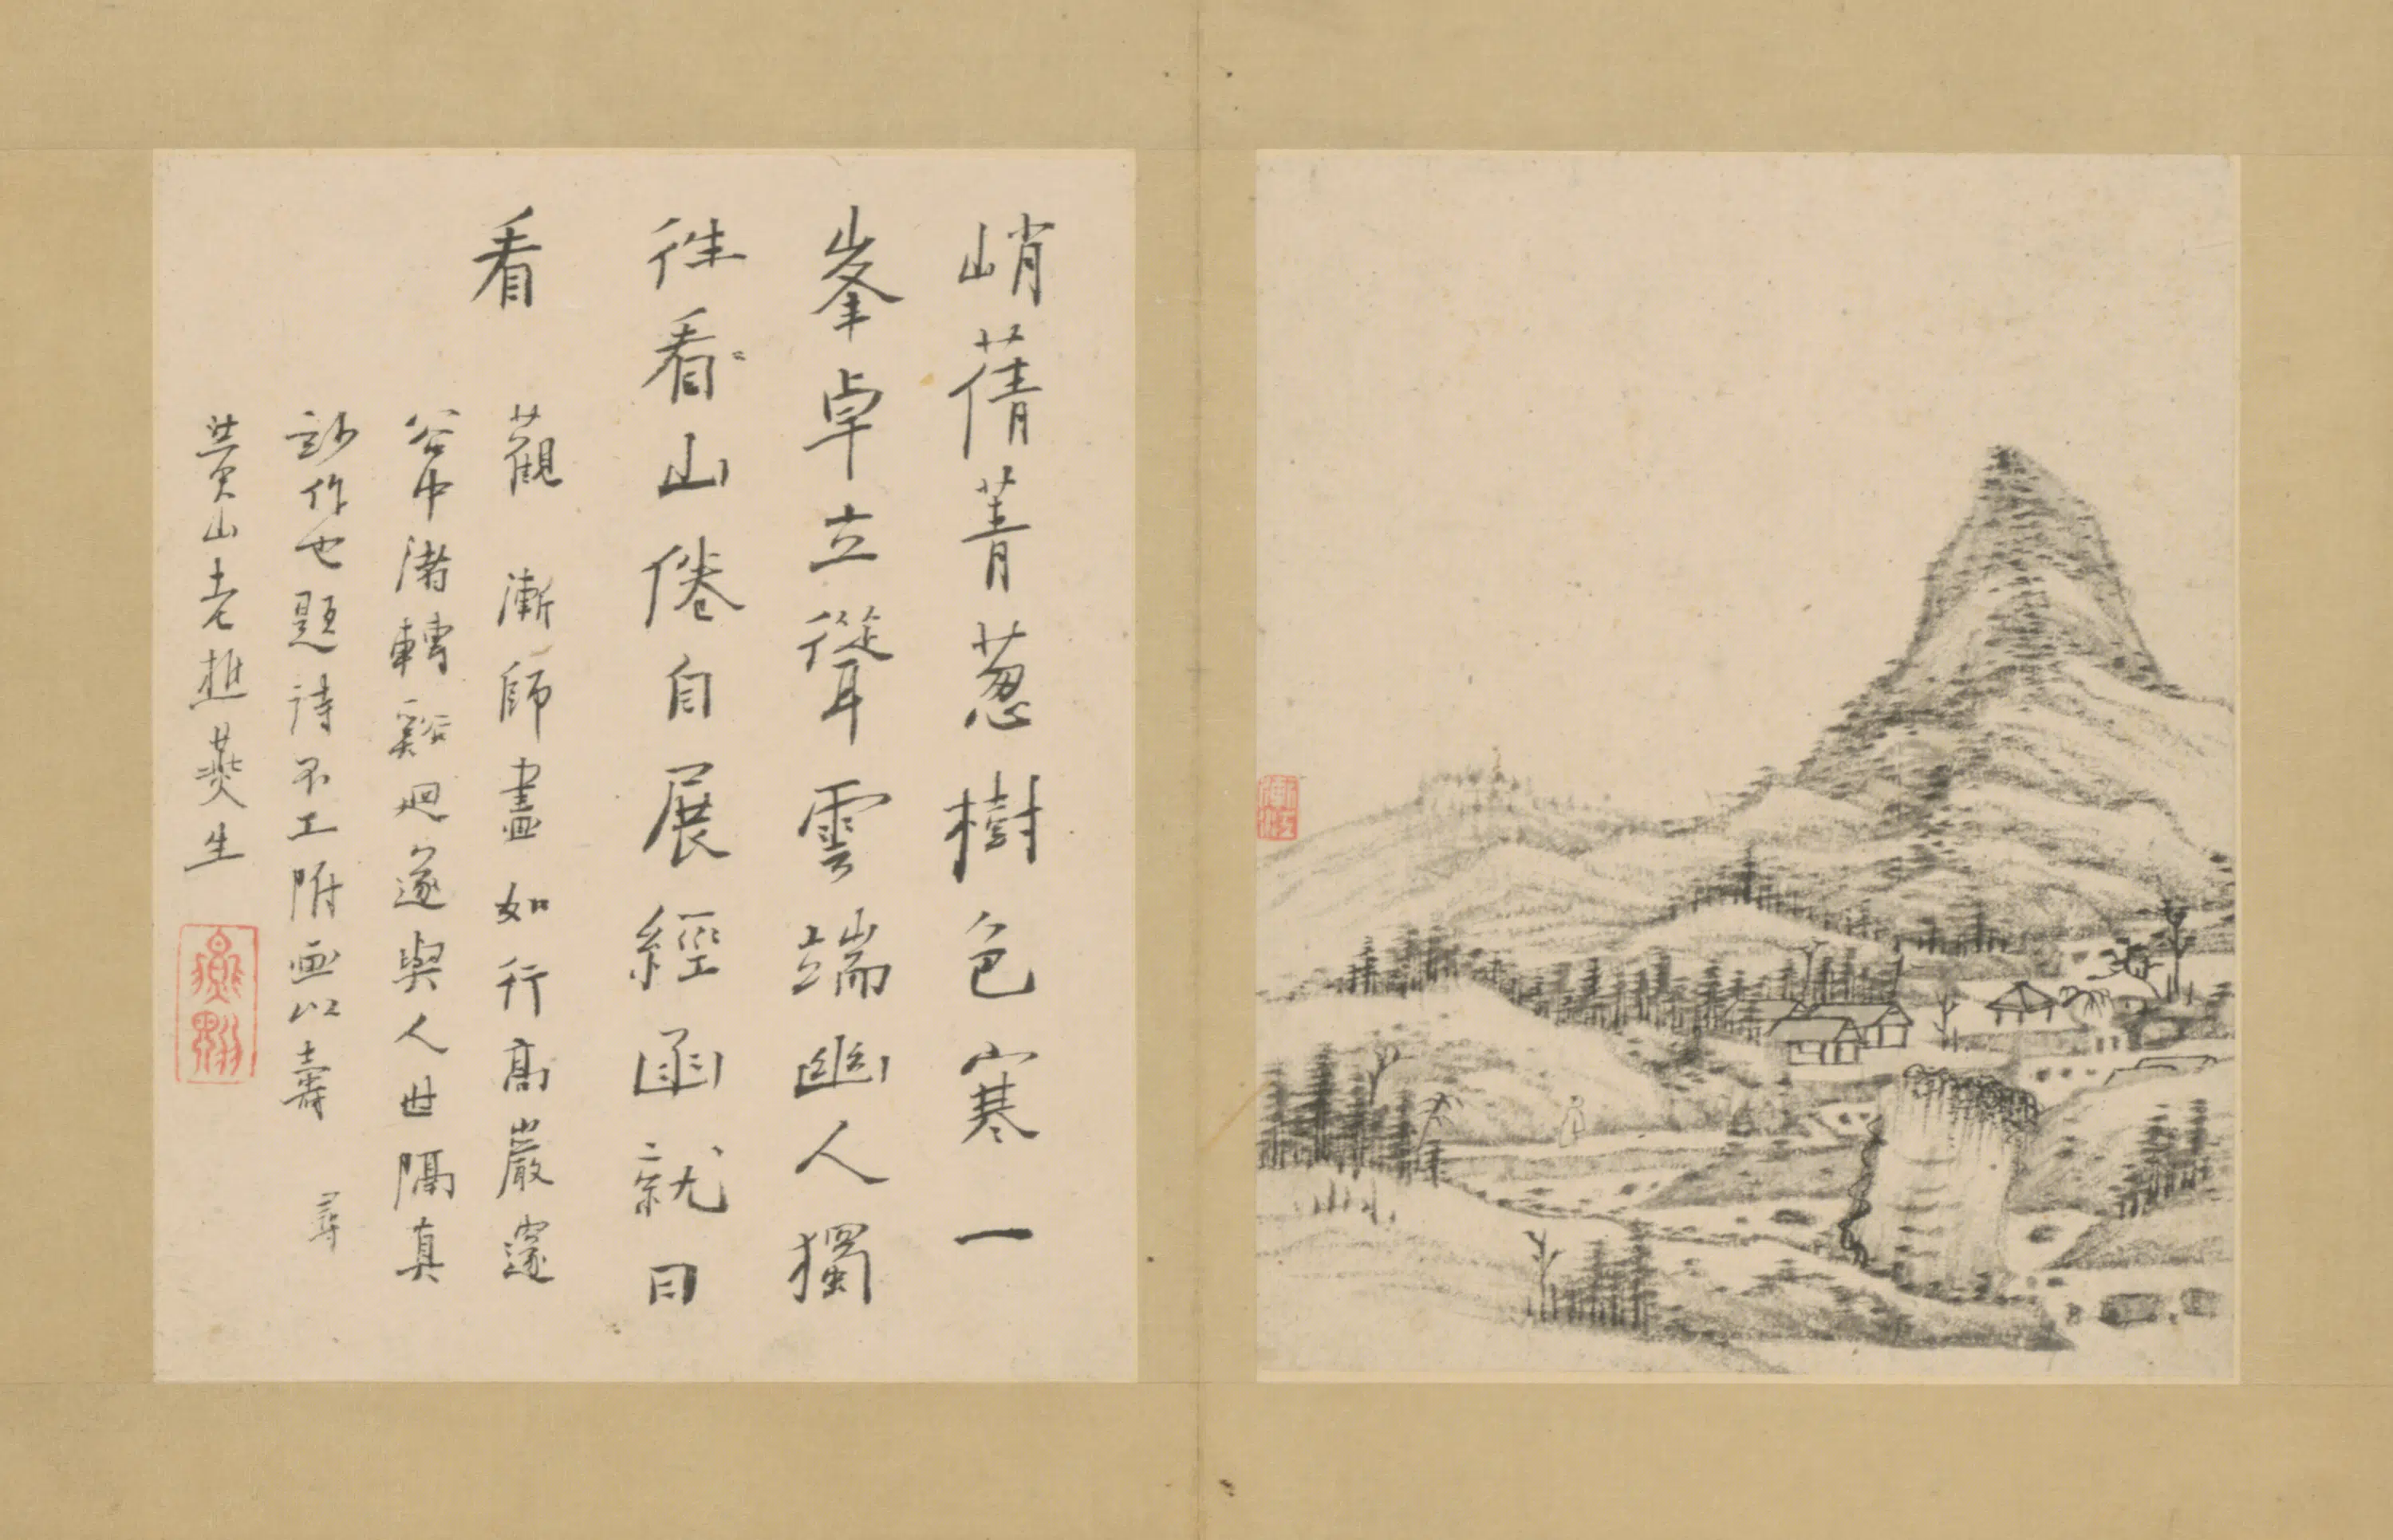 峭蒨菁葱樹色寒一
峯卓立聳雲端幽人獨
往看〻山倦自展經函就日
看
觀漸師畫如行高巖邃
谷中渚轉谿迴遂與人世隔真
妙作也題詩不工附画以壽尋
黄山老樵燕生
漸江